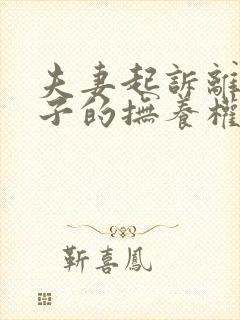 夫妻起訴離
子的撫養權
靳喜鳳